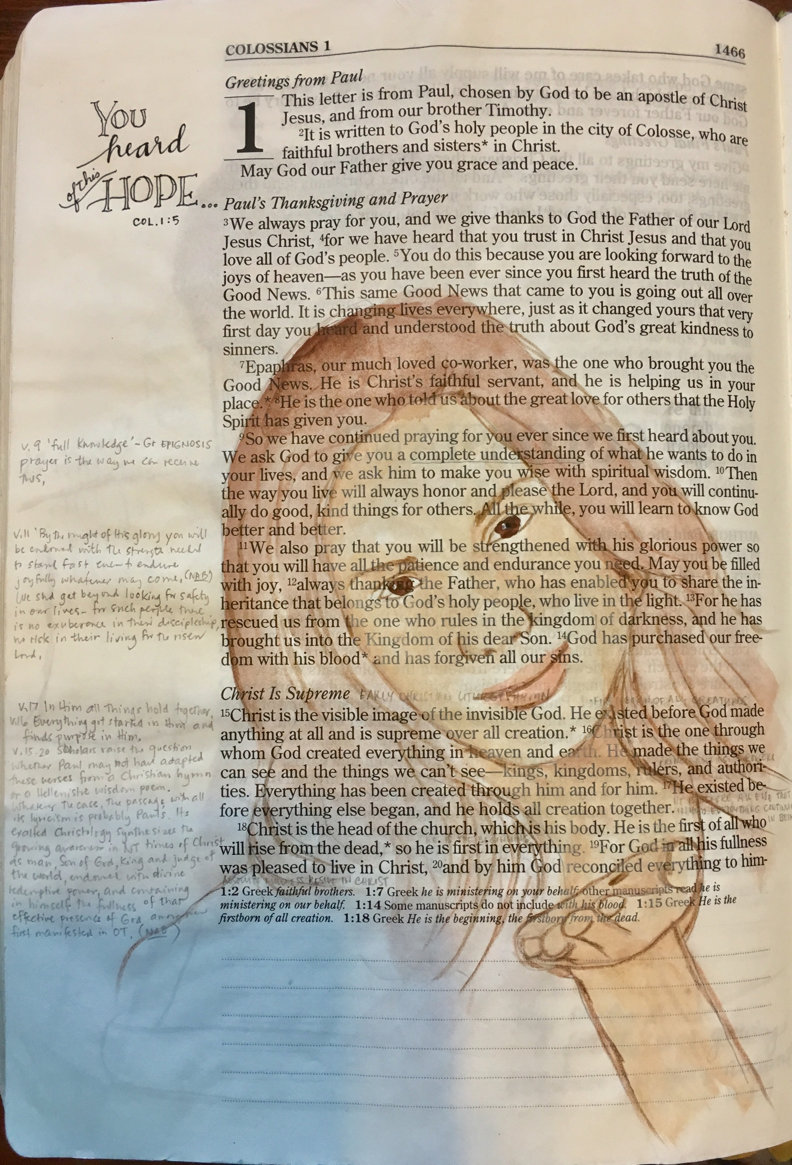 COLOSSIANS 1 1466
You
heard
of this
HOPE...
COL. 1:5
Greetings from Paul
1 This letter is from Paul, chosen by God to be an apostle of Christ
Jesus, and from our brother Timothy.
2It is written to God's holy people in the city of Colosse, who are
faithful brothers and sisters* in Christ.
May God our Father give you grace and peace.
Paul's Thanksgiving and Prayer
3We always pray for you, and we give thanks to God the Father of our Lord
Jesus Christ, 4for we have heard that you trust in Christ Jesus and that you
love all of God's people. 5You do this because you are looking forward to the
joys of heaven—as you have been ever since you first heard the truth of the
Good News. 6This same Good News that came to you is going out all over
the world. It is changing lives everywhere, just as it changed yours that very
first day you heard and understood the truth about God's great kindness to
sinners.
7Epaphras, our much loved co-worker, was the one who brought you the
Good News. He is Christ's faithful servant, and he is helping us in your
place.* 8He is the one who told us about the great love for others that the Holy
Spirit has given you.
9So we have continued praying for you ever since we first heard about you.
We ask God to give you a complete understanding of what he wants to do in
your lives, and we ask him to make you wise with spiritual wisdom. 10Then
the way you live will always honor and please the Lord, and you will continu-
ally do good, kind things for others. All the while, you will learn to know God
better and better.
11We also pray that you will be strengthened with his glorious power so
that you will have all the patience and endurance you need. May you be filled
with joy, 12always thanking the Father, who has enabled you to share the in-
heritance that belongs to God's holy people, who live in the light. 13For he has
rescued us from the one who rules in the kingdom of darkness, and he has
brought us into the Kingdom of his dear Son. 14God has purchased our free-
dom with his blood* and has forgiven all our sins.
Christ Is Supreme EARLY CHRISTIAN
15Christ is the visible image of the invisible God. He existed before God made
anything at all and is supreme over all creation.* 16Christ is the one through
whom God created everything in heaven and earth. He made the things we
can see and the things we can't see—kings, kingdoms, rulers, and authori-
ties. Everything has been created through him and for him. 17He existed be-
fore everything else began, and he holds all creation together.
18Christ is the head of the church, which is his body. He is the first of all who
will rise from the dead,* so he is first in everything. 19For God in all his fullness
was pleased to live in Christ, 20and by him God reconciled everything to him-
1:2 Greek faithful brothers. 1:7 Greek he is ministering on your behalf; other manuscripts read he is
ministering on our behalf. 1:14 Some manuscripts do not include with his blood. 1:15 Greek He is the
firstborn of all creation. 1:18 Greek He is the beginning, the firstborn from the dead.
v. 9 'full knowledge' - Gr EPIGNOSIS
prayer is the way we can receive
this.
v.11 "By the might of His glory you will
be endowed with the strength needed
to stand fast even to endure
joyfully whatever may come. (NAB)
We shd get beyond looking for safety
in our lives - for such people there
is no exuberance in their discipleship,
no risk in their living for the risen
Lord.
v.17 In Him all things hold together.
v16 Everything got started in Him and
finds purpose in Him.
v. 15-20 Scholars raise the question
whether Paul may not had adapted
these verses from a Christian hymn
or a Hellenistic wisdom poem.
Whatever the case, the passage with all
its lyricism is probably Paul's. He
exalted Christology synthesizes the
growing awareness in NT times of Christ
as man, Son of God, King and judge of
the world, endowed with divine
redemptive power, and containing
in himself the fullness of that
effective presence of God among
first manifested in OT. (NAB)